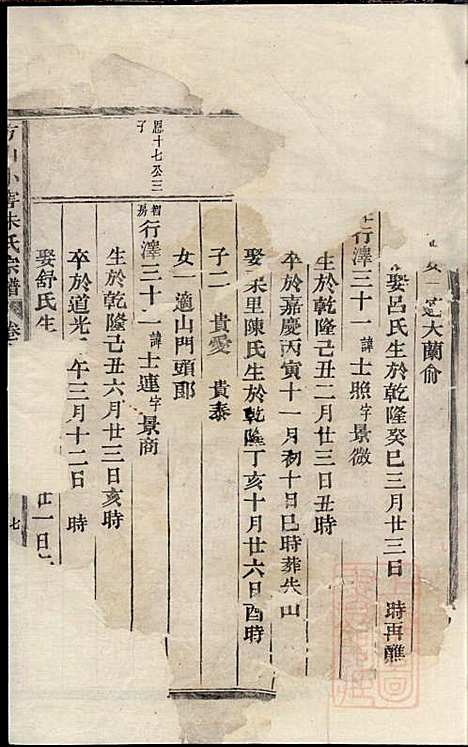 大蘭俞
娶呂氏生於乾隆癸巳三月廿三日 時再醮
行澤三十一諱士照字景微
生於乾隆己丑二月廿三日丑時
卒於嘉慶丙寅十一月初十日巳時葬失山
娶 里陳氏生於乾隆丁亥十月廿六日酉時
子二 貴愛 貴泰
女一適山門頭郎
恩十七公三子
行澤三十二諱士連字景商
生於乾隆己丑六月廿三日亥時
卒於道光 午三月十二日 時
娶舒氏生 廿一日
朱氏宗譜 卷 七